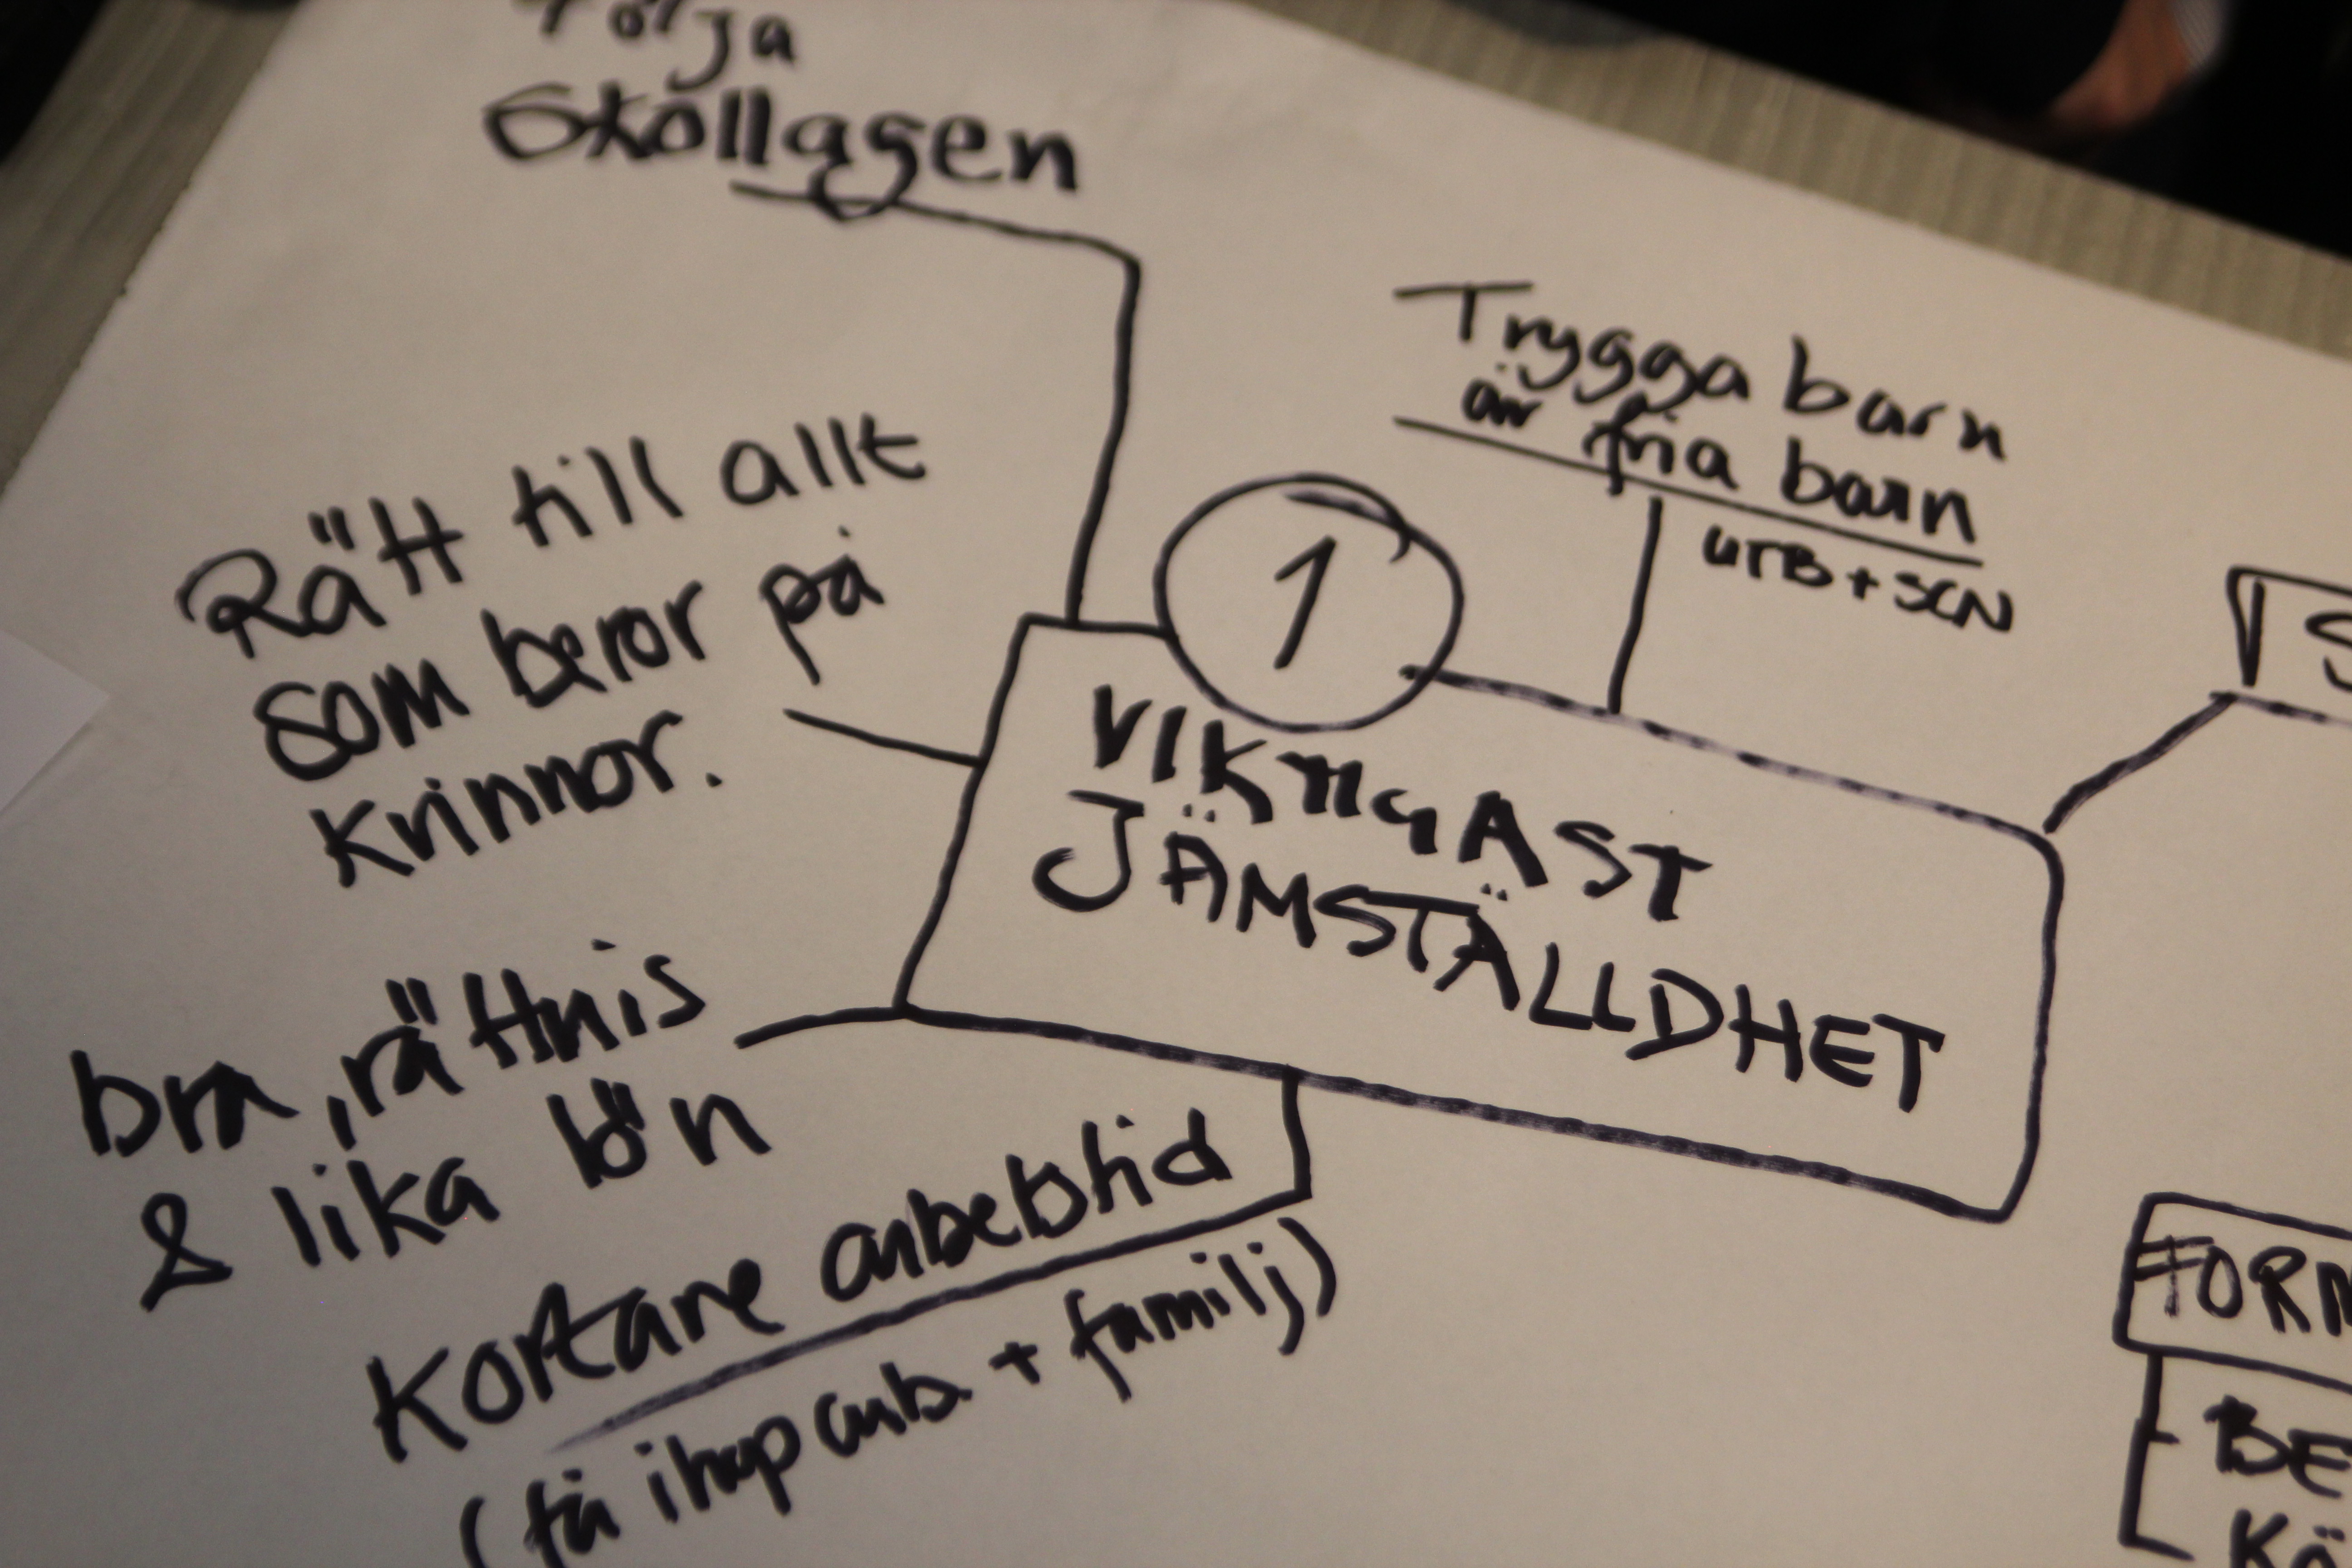 följa
skollagen
Trygga barn
är fria barn
UTB + SCN
Rätt till allt
som beror på
kvinnor.
1
VIKTIGAST
JÄMSTÄLLDHET
bra, rättvis
& lika lön
Kortare arbetstid
(få ihop arb. + familj)
S
FORM
BE
KÄ